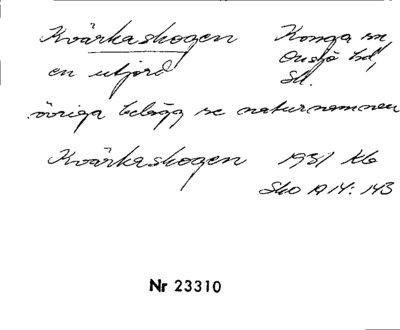 Kvärkaskogen Konga sn,
en utjord Onsjö hd,
Sk.
övriga belägg se naturnamnen
Kvärkaskogen 1931 Kb
Sko 19 14: 143
Nr 23310